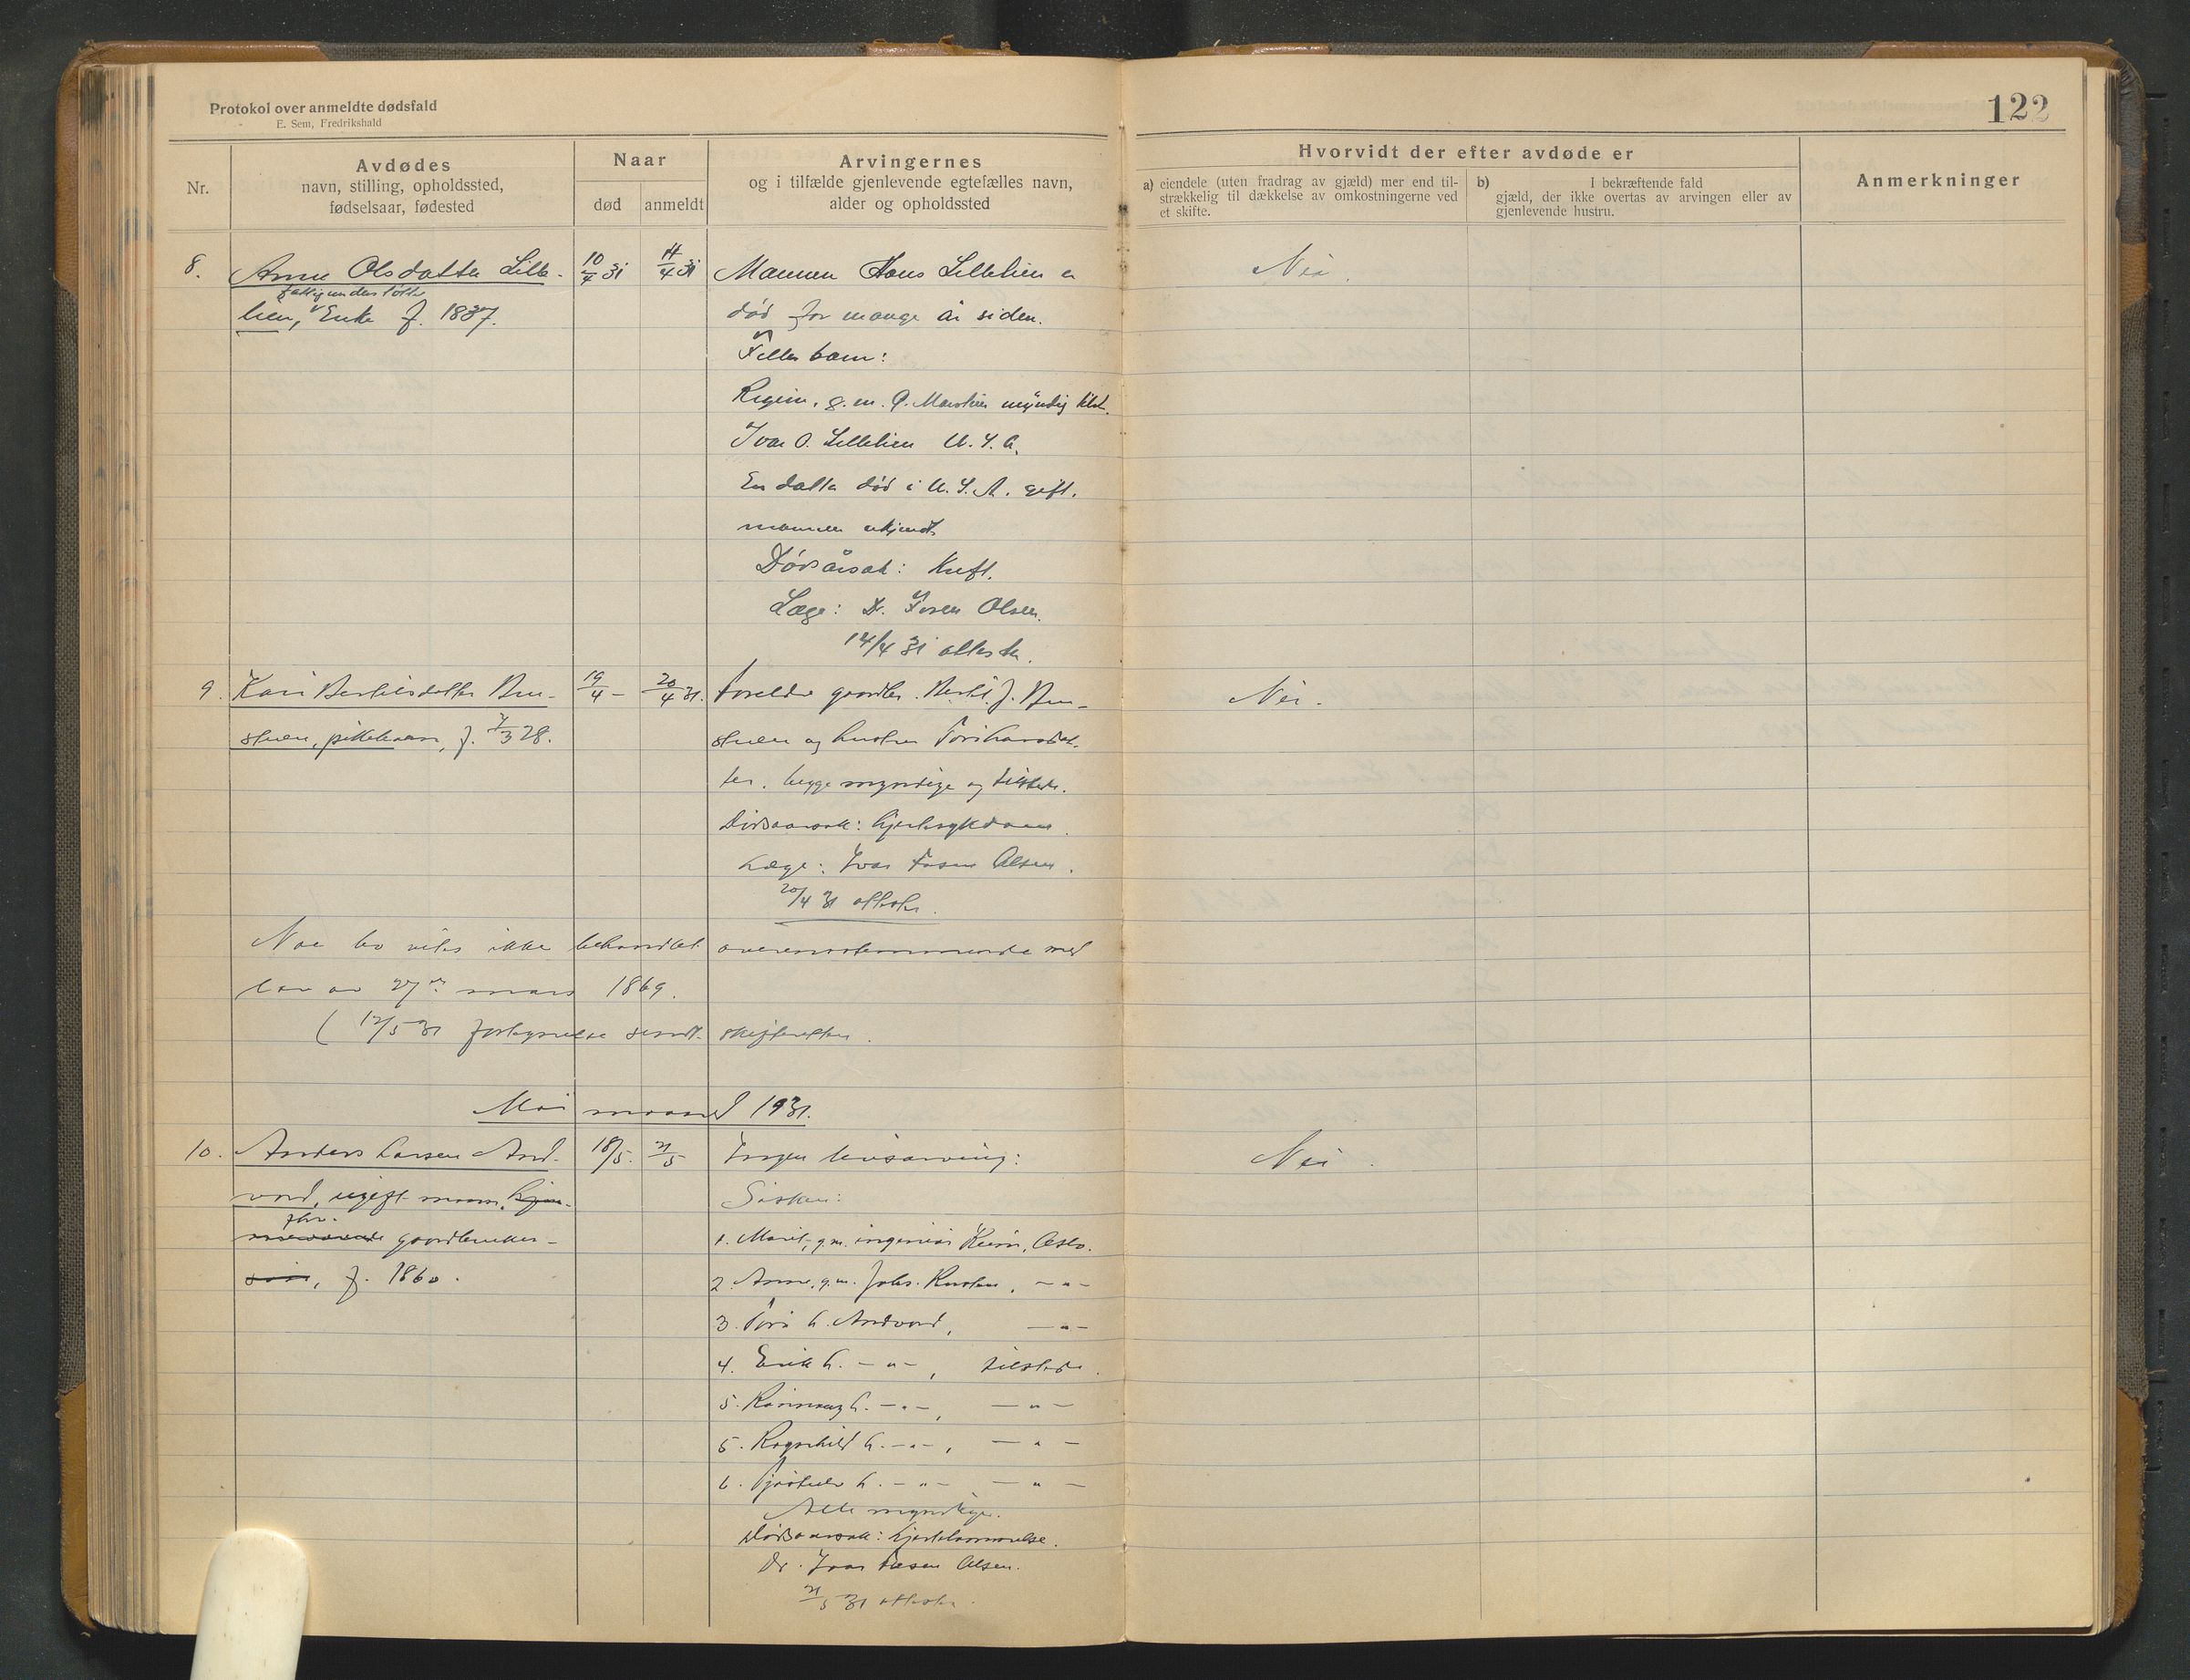 Protokol over anmeldte dødsfald
E. Sem, Fredrikshald
122
Nr.
Avdødes
navn, stilling, opholdssted,
fødselsaar, fødested
Naar
død
anmeldt
Arvingernes
og i tilfælde gjenlevende egtefælles navn,
alder og opholdssted
Hvorvidt der efter avdøde er
a) eiendele (uten fradrag av gjæld) mer end til-
strækkelig til dækkelse av omkostningerne ved
et skifte.
b) I bekræftende fald
gjæld, der ikke overtas av arvingen eller av
gjenlevende hustru.
Anmerkninger
8. Anne Olsdatter Lille-
fattigunderstøttet
lien, Enke f. 1837.
10/4 31
11/4 31
Mannen Hans Lillelien er
død for mange år siden.
Felles barn:
g.m. myndig tilst.
Ivar O. Lillelien U.S.A.
En datter død i U.S.A. gift.
mannen ukjendt
Dødsårsak: Kreft.
Læge: Dr. Fosen Olsen.
14/4 31 attester.
Nei.
9. Kari Bertilsdatter
pikebarn, f. 7/3 28.
19/4 -
20/4 31.
Foreldre gaardbr. Bertil J.
og hustru Tori Hansdat-
ter. begge myndige og tilstede.
Dødsaarsak: hjertesykdom.
Læge: Ivar Fosen Olsen.
20/4 31 attester.
Nei.
Noe bo vites ikke behandlet overensstemmende med
lov av 27de mars 1869.
(12/5 31 fortegnelse sendt skifteretten.
Mai maaned 1931.
10. Anders Larsen And-
vord, ugift mann, hjem-
fhv.
meværende gaardbruker-
søn, f. 1860.
18/5.
21/5
Ingen livsarving:
Søsken:
1. Marit, g.m. ingeniør Oslo.
2. Anne, g.m. Johs. - " -
3. Tori L. Andvord, - " -
4. Erik L. - " -, tilstede.
5. Rønnaug L. - " -, - " -
5. Ragnhild L. - " -, - " -
6. L. - " - - " -
Alle myndige.
Dødsaarsak: hjertelammelse.
Dr. Ivar Fosen Olsen.
21/5 31 attester.
Nei.